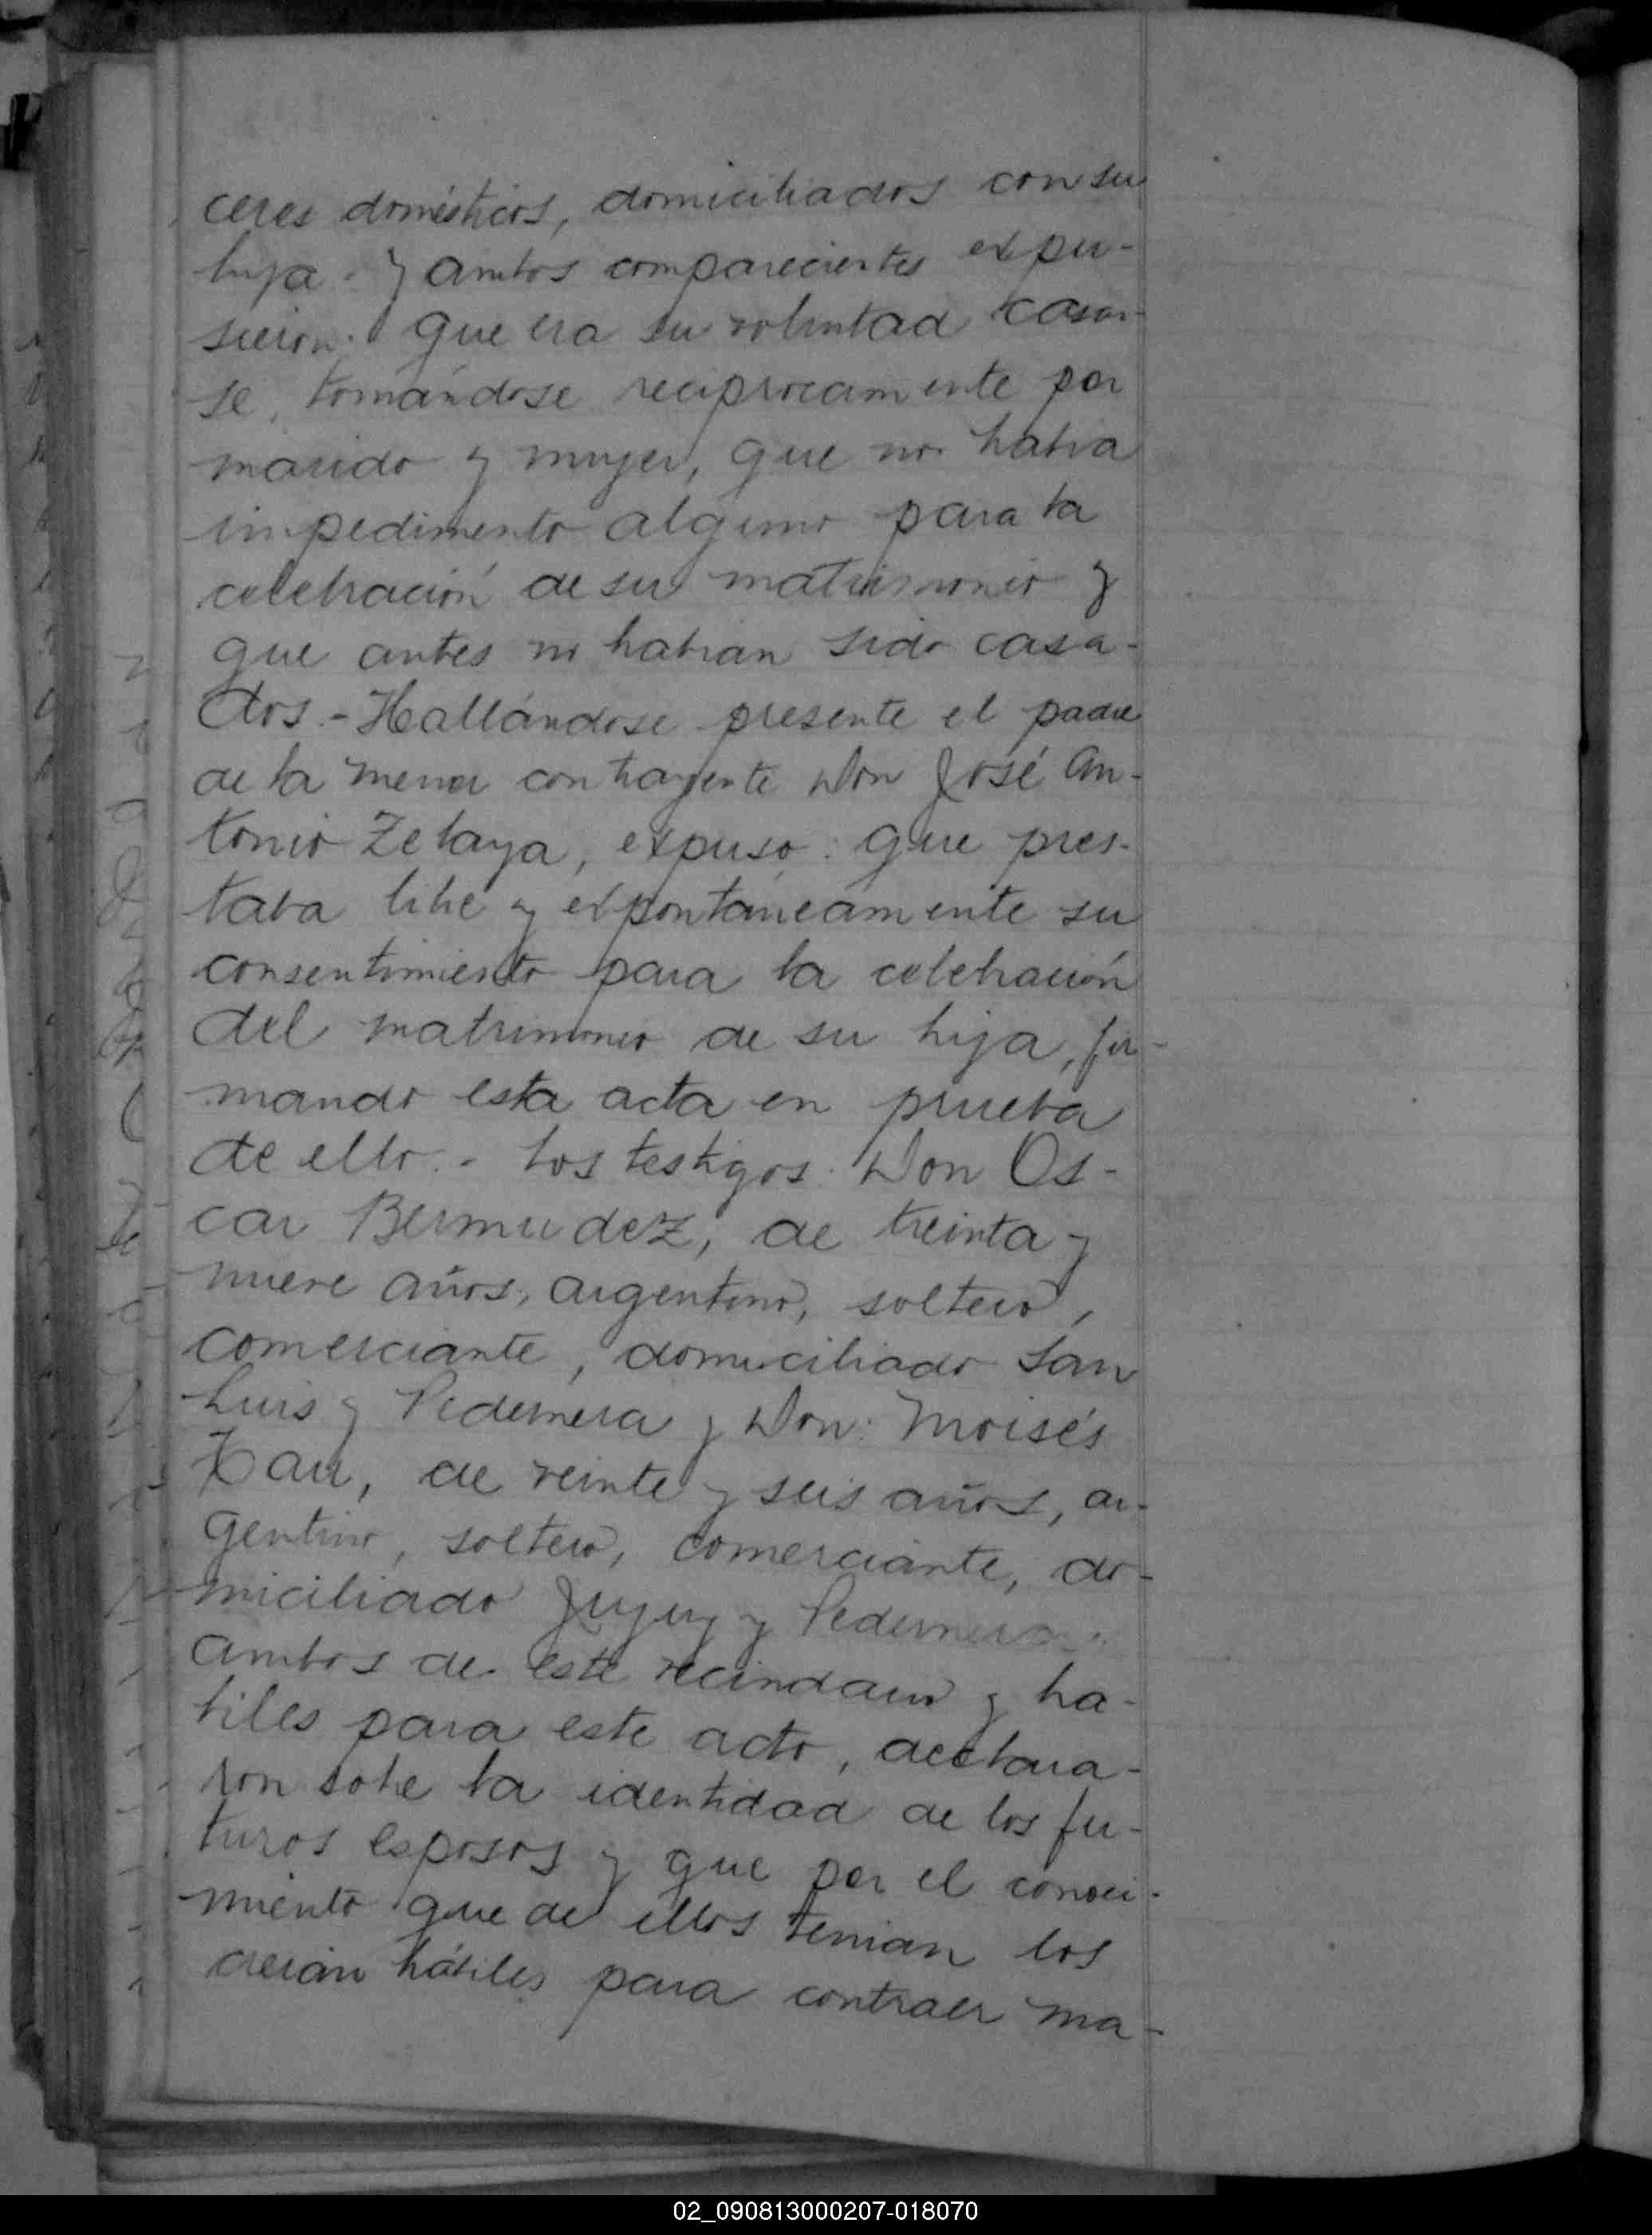 ceres domésticos, domiciliados con su
hija. Y ambos comparecientes expu-
sieron: que era su voluntad casar-
se, tomándose reciprocamente por
marido y mujer, que no habia
impedimento alguno para la
celebración de su matrimonio y
que antes no habian sido casa-
dos.- Hallándose presente el padre
de la menor contrayente Don José An-
tonio Zelaya, expuso: que pres-
taba libre y expontáneamente su
consentimiento para la celebración
del matrimonio de su hija, fir-
mando esta acta en prueba
de ello.- Los testigos: Don Os-
car Bermudez, de treinta y
nueve años, argentino, soltero,
comerciante, domiciliado San
Luis y Pedernera y Don: Moisés
de veinte y seis años, ar-
gentino, soltero, comerciante, do-
miciliado Jujuy y Pedernera
ambos de este vecindario y ha-
biles para este acto, declara-
ron sobre la identidad de los fu-
turos esposos y que por el conoci-
miento que de ellos tenian los
creian hábiles para contraer ma-
02_090813000207-018070